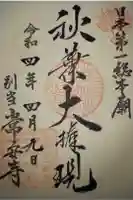 日本第一総本廟
秋葉大権現
令和四年四月九日
別当常安寺